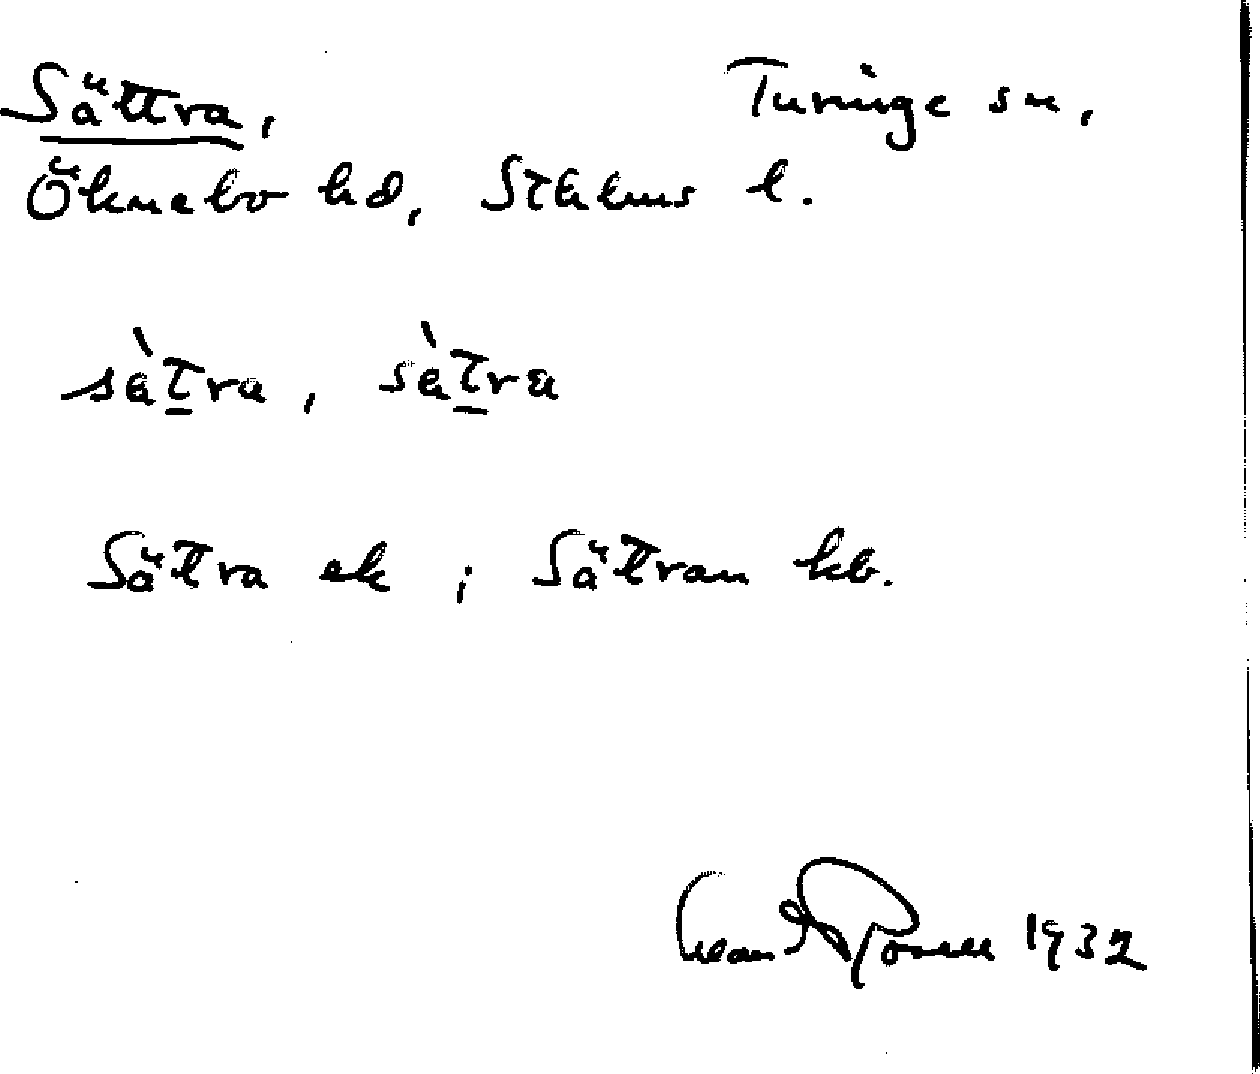 Sättra, Turinge sn,
Öknebo hd, Sthlms l.
sè̀t̲ra, sè̀t̲ra
Sättra ek ; Sättran kb.
1932